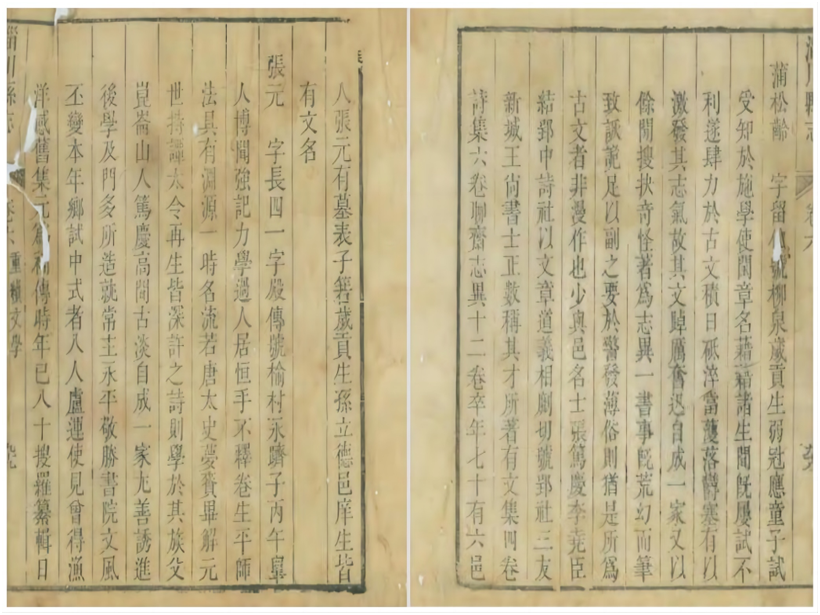 淄川縣志 卷六
蒲松齡 字留號柳泉歲貢生弱冠應童子試
受知於施學使閏章名藉藉諸生間旣屢試不
利遂肆力於古文積日砥淬當濩落欝塞有以
激發其志氣故其文踔厲奮迅自成一家又以
餘閒搜抉奇怪著爲志異一書事旣荒幻而筆
致詼詭足以副之要於警發薄俗則猶是所爲
古文者非漫作也少與邑名士張篤慶李堯臣
結郢中詩社以文章道義相劘切號郢社三友
新城王尙書士正數稱其才所著有文集四卷
詩集六卷聊齋志異十二卷卒年七十有六邑
人張元有墓表子篛歲貢生孫立德邑庠生皆
有文名
張元 字長四一字殿傳號榆村永躋子丙午舉
人博聞強記力學過人居恒手不釋卷生平師
法具有淵源一時名流若唐太史夢賚畢解元
世持譚太令再生皆深許之詩則學於其族父
崑崙山人篤慶高閒古淡自成一家尢善誘進
後學及門多所造就常主永平敬勝書院文風
丕變本年鄉試中式者八人盧運使見曾得漁
洋感舊集元爲補傳時年已八十搜羅纂輯日
淄川縣志 卷六 重續文學